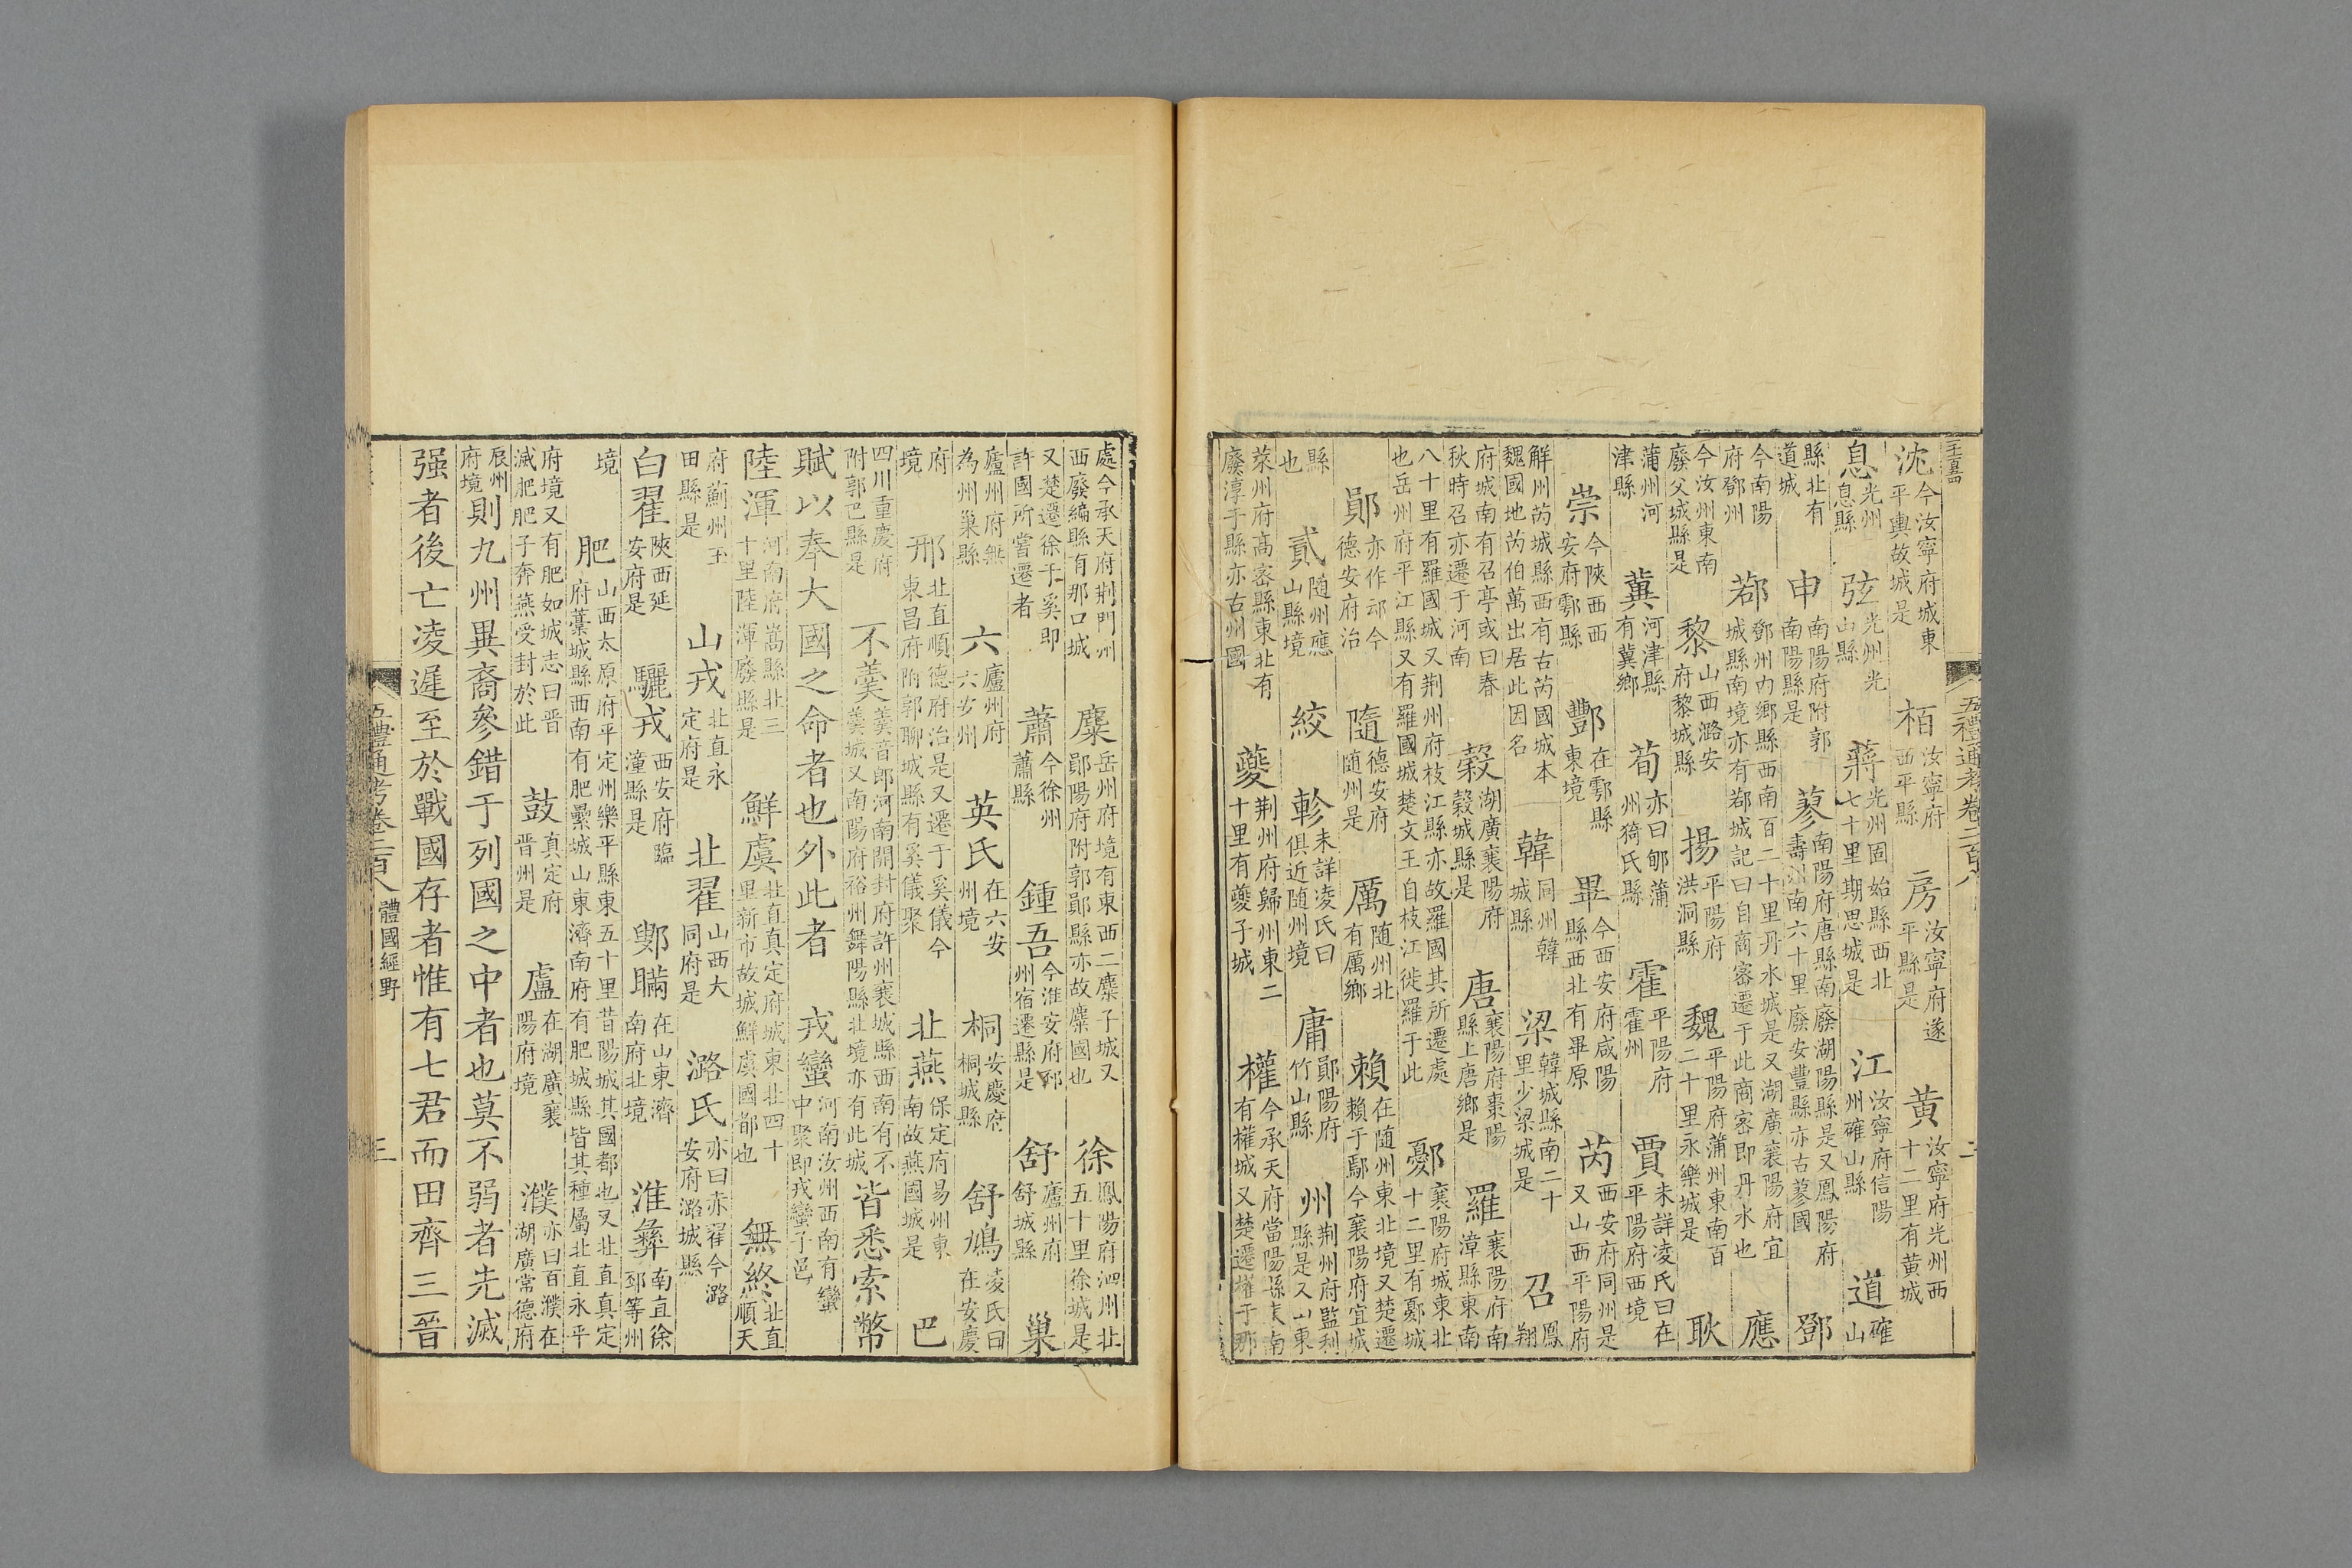 五禮通考卷二百八 二
沈今汝寧府城東平輿故城是 栢汝寧府西平縣 房汝寧府遂平縣是 黄汝寧府光州西十二里有黄城
息光州息縣 弦光州光山縣 蔣光州固始縣西北七十里期思城是 江汝寧府信陽州確山縣 道確山
縣北有道城 申南陽府附郭南陽縣是 蓼南陽府唐縣南廢湖陽縣是又鳳陽府壽州南六十里廢安豐縣亦古蓼國 鄧
今南陽府鄧州 鄀鄧州内鄉縣西南百二十里丹水城是又湖廣襄陽府宜城縣南境亦有鄀城記曰自商密遷于此商密即丹水也 應
今汝州東南廢父城縣是 黎山西潞安府黎城縣 揚平陽府洪洞縣 魏平陽府蒲州東南百二十里永樂城是 耿
蒲州河津縣 冀河津縣有冀鄉 荀亦曰郇蒲州猗氏縣 霍平陽府霍州 賈未詳凌氏曰在平陽府西境
崇今陝西西安府鄠縣 酆在鄠縣東境 畢今西安府咸陽縣西北有畢原 芮西安府同州是又山西平陽府
解州芮城縣西有古芮國城本魏國地芮伯萬出居此因名 韓同州韓城縣 梁韓城縣南二十里少梁城是 召鳳翔
府城南有召亭或曰春秋時召亦遷于河南 穀湖廣襄陽府穀城縣是 唐襄陽府棗陽縣上唐鄉是 羅襄陽府南漳縣東南
八十里有羅國城又荆州府枝江縣亦故羅國其所遷處也岳州府平江縣又有羅國城楚文王自枝江徙羅于此 鄾襄陽府城東北十二里有鄾城
鄖亦作䢵今德安府治 隨德安府随州是 厲随州北有厲鄉 賴在随州東北境又楚遷賴于鄢今襄陽府宜城
縣也 貳随州應山縣境 絞 軫未詳凌氏曰俱近随州境 庸鄖陽府竹山縣 州荆州府監利縣是又山東
萊州府高密縣東北有廢淳于縣亦古州國 夔荆州府歸州東二十里有夔子城 權今承天府當陽縣東南有權城又楚遷權于那
處今承天府荆門州西廢編縣有那口城 麋岳州府境有東西二麋子城又鄖陽府附郭鄖縣亦故麇國也 徐鳳陽府泗州北五十里徐城是
又楚遷徐于奚即許國所嘗遷者 蕭今徐州蕭縣 鍾吾今淮安府邳州宿遷縣是 舒廬州府舒城縣 巢
廬州府無為州巢縣 六廬州府六安州 英氏在六安州境 桐安慶府桐城縣 舒鳩凌氏曰在安慶
府境 邢北直順德府治是又遷于奚儀今東昌府附郭聊城縣有奚儀聚 北燕保定府易州東南故燕國城是 巴
四川重慶府附郭巴縣是 不羹羹音郎河南開封府許州襄城縣西南有不羹城又南陽府裕州舞陽縣北境亦有此城 皆悉索幣
賦以奉大國之命者也外此者 戎蠻河南汝州西南有蠻中聚即戎蠻子邑
陸渾河南府嵩縣北三十里陸渾廢縣是 鮮虞北直真定府城東北四十里新市故城鮮虞國都也 無終北直順天
府薊州玉田縣是 山戎北直永定府是 北翟山西大同府是 潞氏亦曰赤翟今潞安府潞城縣
白翟陝西延安府是 驪戎西安府臨潼縣是 鄋瞞在山東濟南府北境 淮彝南直徐邳等州
境 肥山西太原府平定州樂平縣東五十里昔陽城其國都也又北直真定府藁城縣西南有肥纍城山東濟南府有肥城縣皆其種屬北直永平
府境又有肥如城志曰晋滅肥肥子奔燕受封於此 鼓真定府晋州是 盧在湖廣襄陽府境 濮亦曰百濮在湖廣常德府
辰州府境 則九州異裔參錯于列國之中者也莫不弱者先滅
强者後亡凌遲至於戰國存者惟有七君而田齊三晉
五禮通考卷二百八 體國經野 三